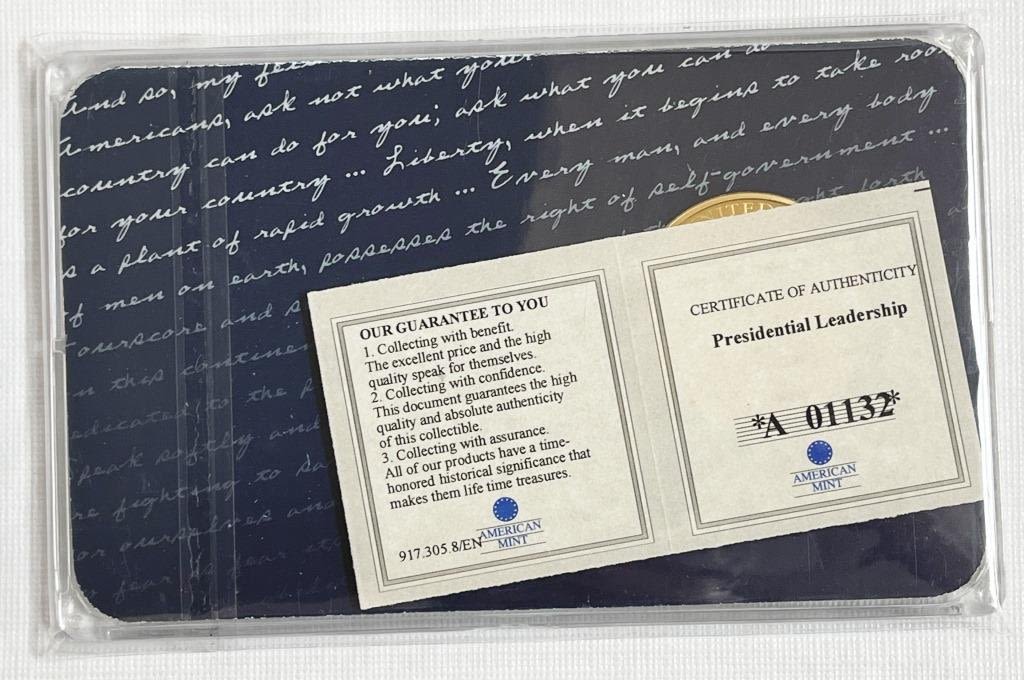 and so, my
Americans, ask not what your
country can do for you; ask what you can do
for your country ... Liberty, when it begins to take roo
s a plant of rapid growth ... Every man, and every body
of men on earth, possesses the right of self-government ...
Fourscore and s
n this continen
edicated to the p
peak softly and
re fighting to
or ourselves and
fear
forth
UNITED
OUR GUARANTEE TO YOU
1. Collecting with benefit.
The excellent price and the high
quality speak for themselves.
2. Collecting with confidence.
This document guarantees the high
quality and absolute authenticity
of this collectible.
3. Collecting with assurance.
All of our products have a time-
honored historical significance that
makes them life time treasures.
917.305.8/EN
AMERICAN
MINT
CERTIFICATE OF AUTHENTICITY
Presidential Leadership
*A 01132*
AMERICAN
MINT